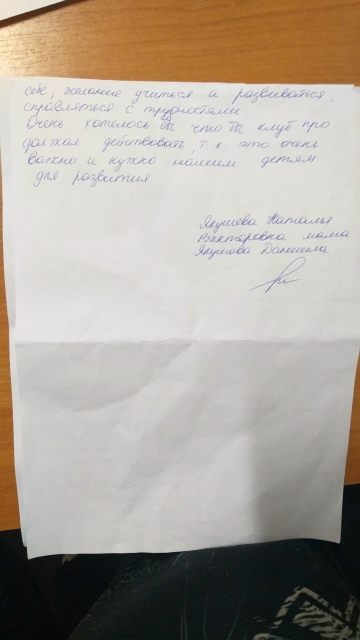 себе, желание учиться и развиваться,
справляться с трудностями.
Очень хотелось бы что бы клуб про-
должал действовать, т.к. это очень
важно и нужно нашим детям
для развития
Якушева Наталья
Викторовна мама
Якушева Даниила